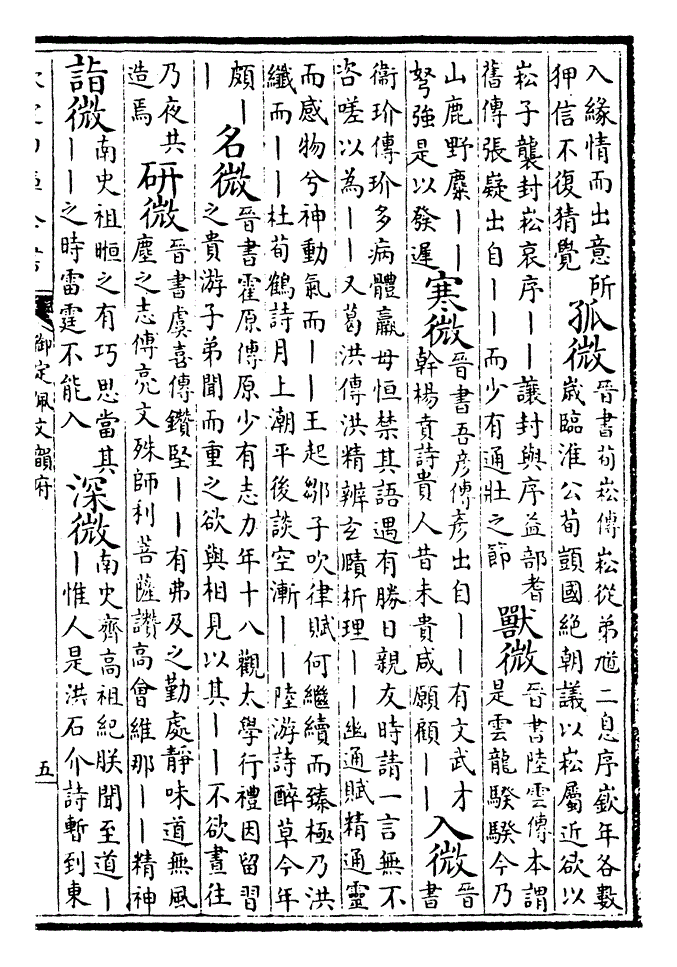 入緣情而出意所
狎信不復猜覺
孤微
晉書荀崧傳崧從弟馗二息序廞年各數
歲臨淮公荀顗國絕朝議以崧屬近欲以
崧子襲封崧哀序丨丨讓封與序益部耆
舊傳張嶷出自丨丨而少有通壯之節
獸微
晉書陸雲傳本謂
是雲龍騤騤今乃
山鹿野麋丨丨
弩強是以發遲
寒微
晉書吾彥傳彥出自丨丨有文武才
幹楊賁詩貴人昔未貴咸願顧丨丨
入微
晉
書
衛玠傳玠多病體羸母恒禁其語遇有勝日親友時請一言無不
咨嗟以為丨丨又葛洪傳洪精辨玄賾析理丨丨幽通賦精通靈
而感物兮神動氣而丨丨王起鄒子吹律賦何繼續而臻極乃洪
纖而丨丨杜荀鶴詩月上潮平後談空漸丨丨陸游詩醉草今年
頗丨
丨
名微
晉書霍原傳原少有志力年十八觀太學行禮因留習
之貴游子弟聞而重之欲與相見以其丨丨不欲晝往
乃夜共
造焉
研微
晉書虞喜傳鑽堅丨丨有弗及之勤處靜味道無風
塵之志傳亮文殊師利菩薩讚高會維那丨丨精神
詣微
南史祖暅之有巧思當其
丨丨之時雷霆不能入
深微
南史齊高祖紀朕聞至道丨
丨惟人是洪石介詩暫到東
御定佩文韻府
五